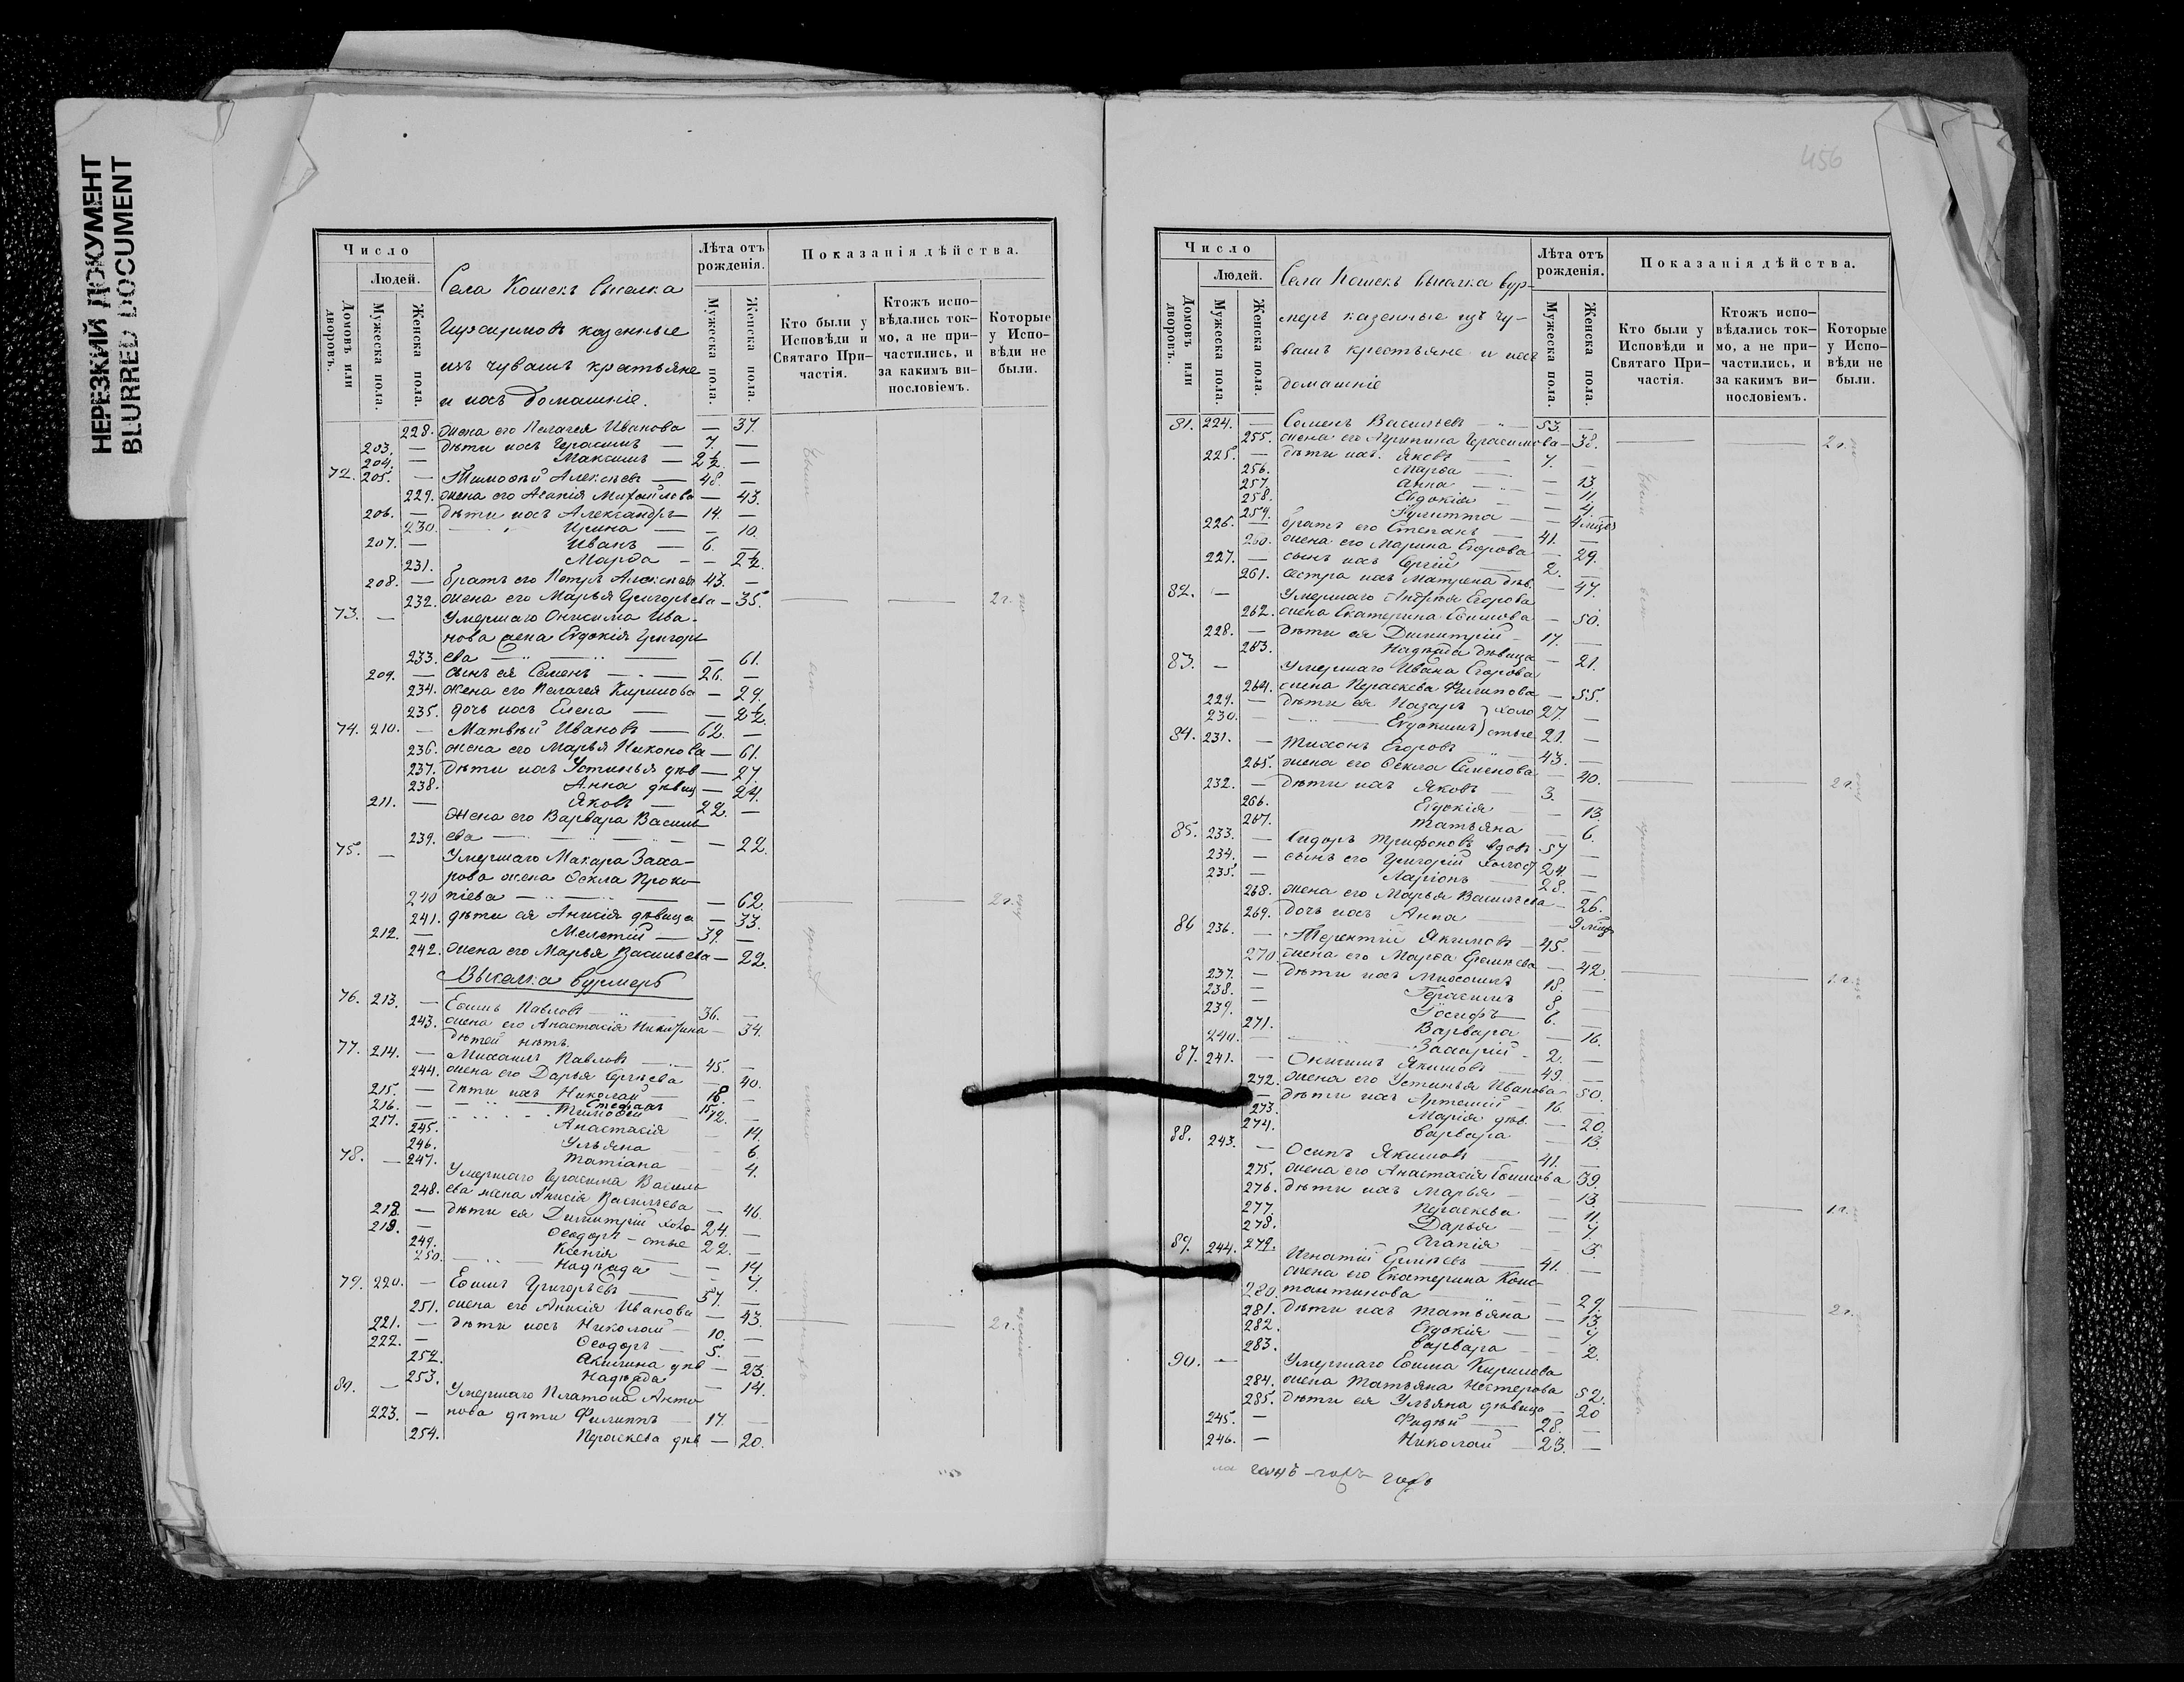 НЕРЕЗКИЙ ДОКУМЕНТ
BLURRED DOCUMENT
Число
Людей.
Домовъ или дворовъ.
Мужеска пола.
Женска пола.
Села Кошекъ выселка
казенные
изъ чувашъ крестьяне
и ихъ домашніе.
Лѣта отъ рожденія.
Мужеска пола.
Женска пола.
Показанія дѣйства.
Кто были у Исповѣди и Святаго Причастія.
Ктожъ исповѣдались токмо, а не причастились, и за какимъ винословіемъ.
Которые у Исповѣди не были.
228. жена его Пелагея Иванова — 37.
203. — дѣти ихъ Герасимъ — 7. —
204. — Максимъ — 2½ —
72. 205. — Тимофѣй Алексѣевъ — 48. —
229. жена его Агапія Михайлова — 43.
206. — дѣти ихъ Александръ — 14. —
230. Ирина — — 10.
207. — Иванъ — 6. —
231. Марѳа — — 2½.
208. — братъ его Петръ Алексѣевъ 43. —
232. жена его Марья Григорьева — 35. 2 г.
73. — Умершаго Онисима Ива-
нова жена Евдокія Григорь
233. ева — — — 61.
209. — сынъ ея Семенъ — 26. —
234. жена его Пелагея Кирилова — 29.
235. дочь ихъ Елена — — 2½.
74. 210. — Матвѣй Ивановъ — 62. —
236. жена его Марья Никонова — 61.
237. дѣти ихъ Устинья дѣв — 27.
238. Анна дѣвиц — 24.
211. — Яковъ — 22. —
Жена его Варвара Василь
239. ева — — — 22.
75. — Умершаго Макара Заха-
рова жена Ѳекла Проко-
240 піева — — — 62. 2 г.
241. дѣти ея Анисія дѣвица — 33.
212. — Мелетій — 39. —
242. Жена его Марья Васильева — 22.
Выселка Вурмеръ
76. 213. — Ефимъ Павловъ — 36. —
243. жена его Анастасія — 34.
дѣтей нѣтъ.
77. 214. — Михаилъ Павловъ — 45. —
244. жена его Дарья Сергѣева — 40.
215. — дѣти ихъ Николай — 18. —
216. — Стефанъ 15. —
217. — Тимофей — 12. —
245. Анастасія — 14.
246. Ульяна — 6.
247. Татіана — 4.
78. — Умершаго Герасима Василь
248. ева жена Анисія Васильева — 46.
218. — дѣти ея Димитрій холо- 24. —
219. — Ѳеодоръ — стые 22. —
249. Ксенія — — 14
250. Надежда — — 7.
79. 220. — Ефимъ Григорьевъ — 57. —
251. жена его Анисія Иванова — 43.
221. — дѣти ихъ Николай — 10. — 2 г.
222. — Ѳеодоръ — 5. —
252. Акилина дѣв — 23.
253. Надежда — 14.
80. — Умершаго Платона Анто
223. — нова дѣти Филиппъ — 17. —
254. Параскева дѣв — 20.
456
Число
Людей.
Домовъ или дворовъ.
Мужеска пола.
Женска пола.
Села Кошекъ выселка Вур-
меръ казенные изъ чу-
вашъ крестьяне и ихъ
домашніе
Лѣта отъ рожденія.
Мужеска пола.
Женска пола.
Показанія дѣйства.
Кто были у Исповѣди и Святаго Причастія.
Ктожъ исповѣдались токмо, а не причастились, и за какимъ винословіемъ.
Которые у Исповѣди не были.
81. 224. — Семенъ Васильевъ — 53. —
255. жена его Агрипина Герасимова — 38. 2 г.
225. — дѣти ихъ. Яковъ — 7. —
256. Марѳа — — 13.
257. Анна — — 11.
258. Евдокія — — 4.
259. Іулитта — — 4 мѣс
226. — братъ его Степанъ — 41. —
260. жена его Марина Егорова — 29.
227. — сынъ ихъ Сергій — 2. —
261. сестра ихъ Матрена дѣв. — 47.
82. — Умершаго Андрея Егорова
262. жена Екатерина Ефимова — 50.
228. — дѣти ея Димитрій — 17. —
263. Надежда дѣвица — 21.
83. — Умершаго Ивана Егорова
264. жена Параскева Филипова — 55.
229. — дѣти ея Назаръ } холо 27. —
230. — Евдокимъ } стые 21. —
84. 231. — Тихонъ Егоровъ — 43. —
265. жена его Ѳекла Семенова — 40. 2 г.
232. — дѣти ихъ Яковъ — 3. —
266. Евдокія — — 13.
267. Татьяна — 6.
85. 233. — Сидоръ Трифоновъ вдовъ 57 —
234. — сынъ его Григорій холост 24 —
235. — Ларіонъ — 28. —
268. жена его Марья Васильева — 26.
269. дочь ихъ Анна — 9 мѣс
86 236. — Терентій Якимовъ — 45. —
270. жена его Марѳа — 42. 1 г.
237. — дѣти ихъ Михаилъ 18. —
238. — Герасимъ 8 —
239. — Іосифъ — 6. —
271. Варвара — 16.
240. — Захарій — 2. —
87. 241. — Онисимъ Якимовъ — 49. —
272. жена его Устинья Иванова — 50.
— дѣти ихъ Артемій — 16. —
273. Марія дѣв. — 20.
274. Варвара — 13
88. 243. — Осипъ Якимовъ — 41. —
275. жена его Анастасія Ефимова 39.
276. дѣти ихъ Марья — — 13. 1 г.
277. Параскева — 11.
278. Дарья — 7.
279. Агапія — 3.
89. 244. — Игнатій — 41. —
жена его Екатерина Конс-
280. тантинова — — 29. 2 г.
281. дѣти ихъ Татьяна — — 13.
282. Евдокія — 7.
283. Варвара — — 2.
90. — Умершаго Ефима Кирилова
284. жена Татьяна Нестерова 52.
285. дѣти ея Ульяна дѣвица — 20
245. — Фадѣй — 28. —
246. — Николай — 23. —